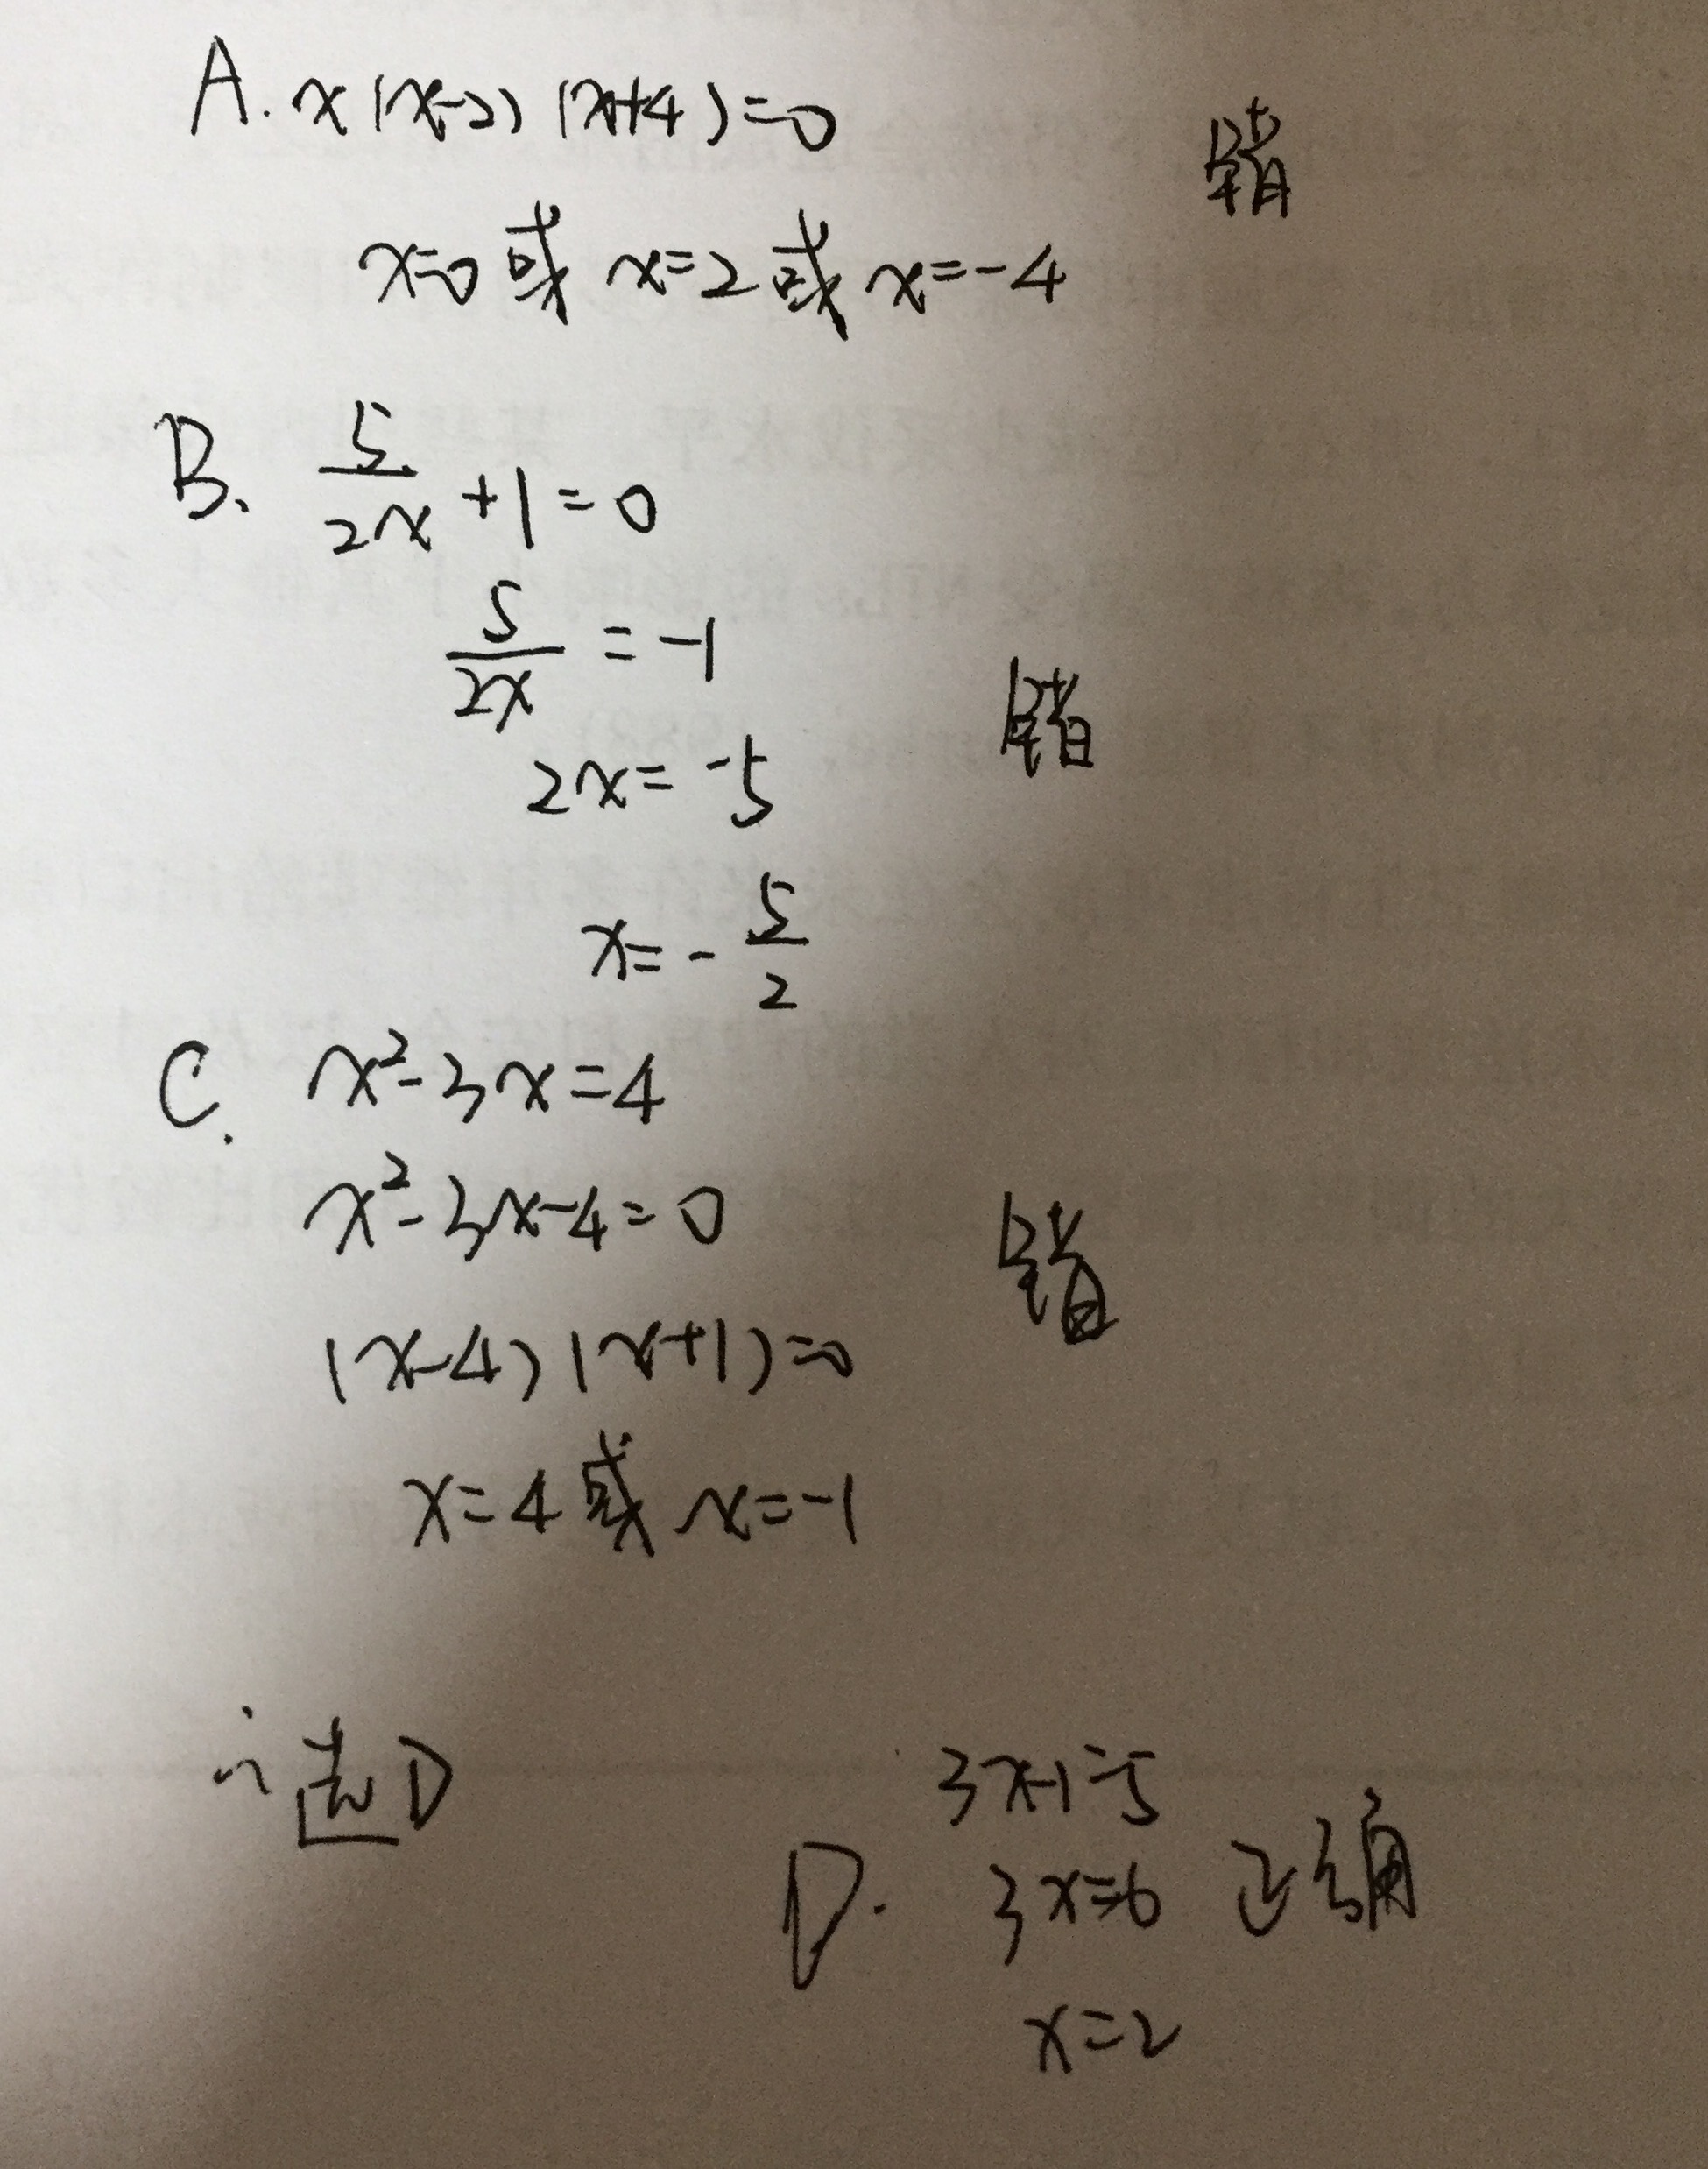 A. x(x-2)(x+4)=0 错
x=0或x=2或x=-4
B. 5/2x+1=0
5/2x=-1
错
2x=-5
x=-5/2
C. x²-3x=4
x²-3x-4=0
错
(x-4)(x+1)=0
x=4或x=-1
∴选D
3x-1=5
D. 3x=6 正确
x=2